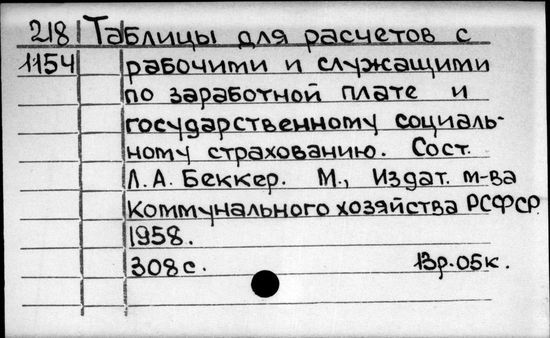 218 Таблицы для расчетов с
1154 рабочими и служащими
по заработной плате и
государственному социаль-
ному страхованию. Сост.
Л.А. Беккер. М., Издат. м-ва
коммунального хозяйства РСФСР
1958.
308 с. 13р.05к.